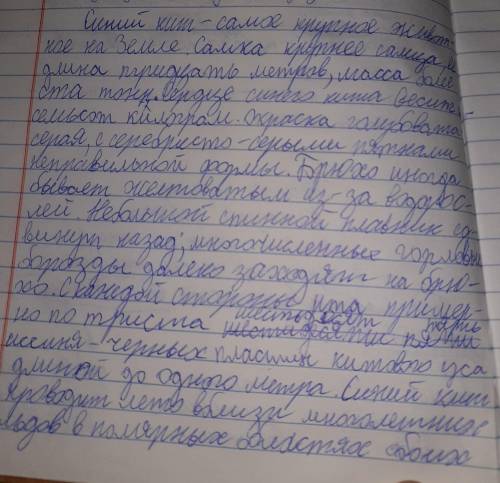 Синий кит - самое крупное живот-
ное на Земле. Самка крупнее самца, её
длина тридцать метров, масса более
ста тонн. Сердце синего кита весит
семьсот килограм. Окраска голубовато-
серая, с серебристо-серыми пятнами
неправильной формы. Брюхо иногда
бывает желтоватым из-за водорос-
лей. Небольшой спинной плавник сд-
винут назад; многочисленные горловые
борозды далеко заходят на брю-
хо. С каждой стороны рта пример-
но по триста шестьдесят пять
иссиня-черных пластин китового уса
длиной до одного метра. Синий кит
проводит лето вблизи многолетних
льдов в полярных областях обоих